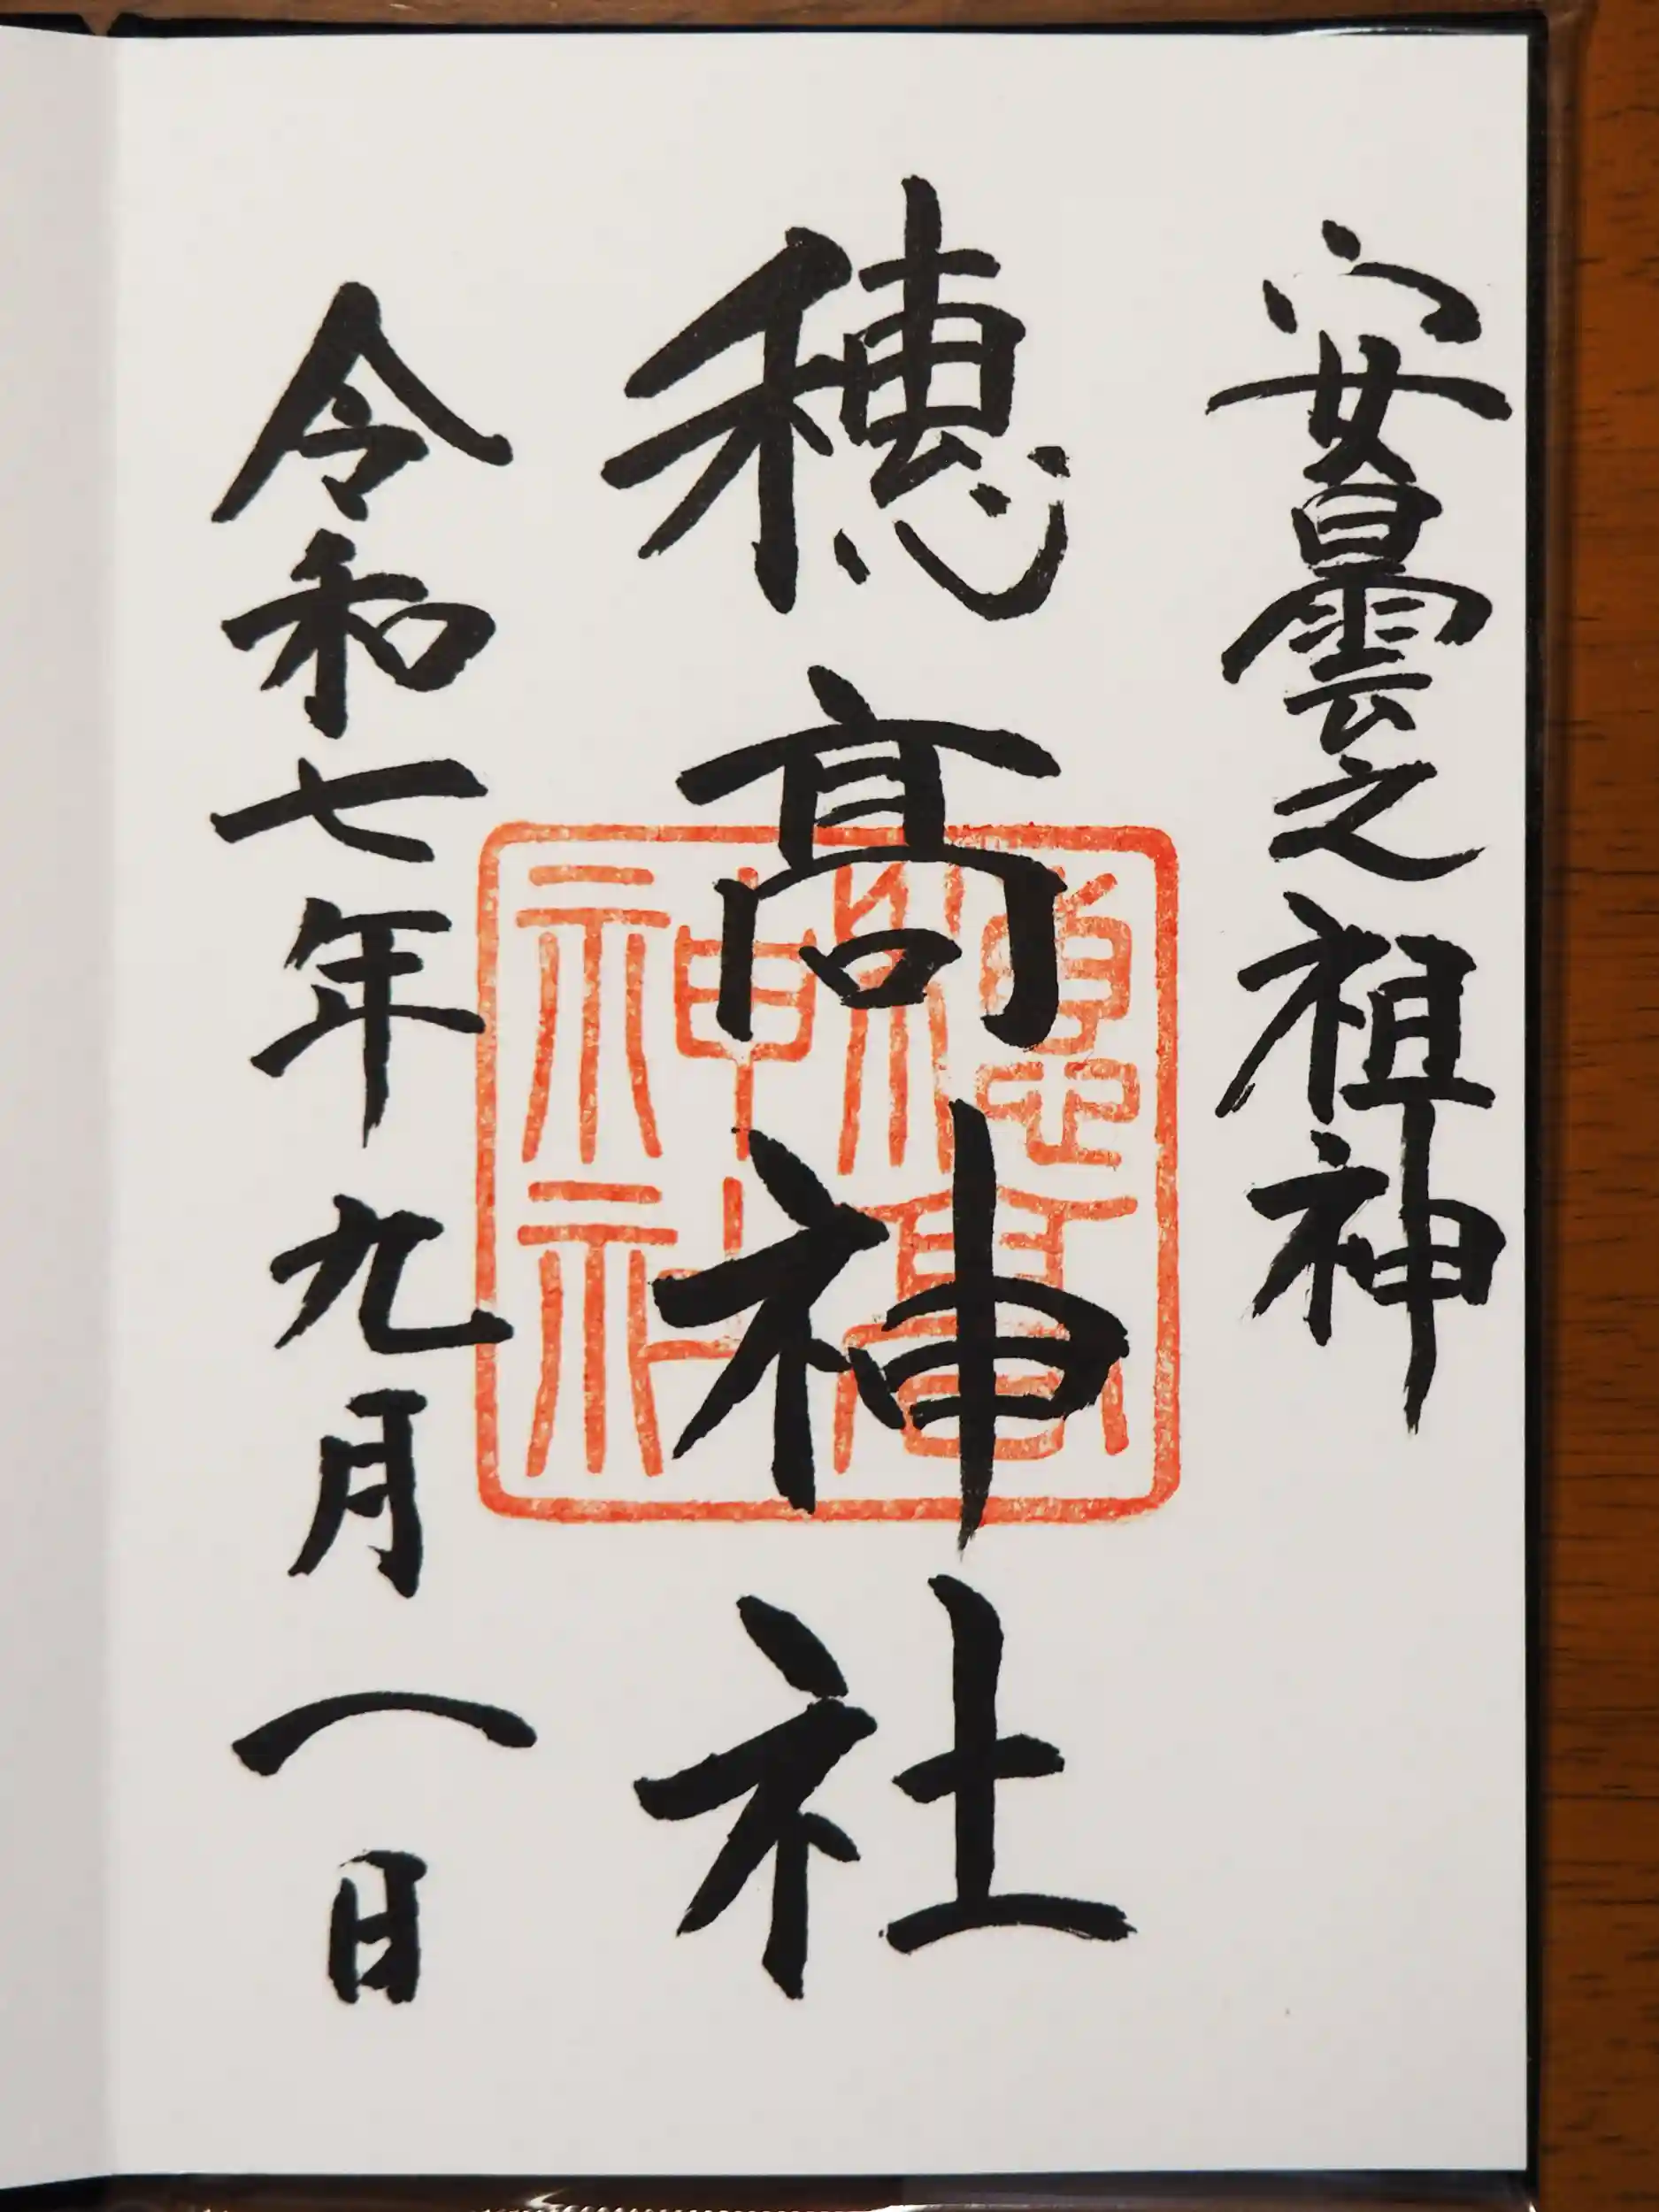 安曇之祖神
穂髙神社
令和七年九月一日
穂髙神社